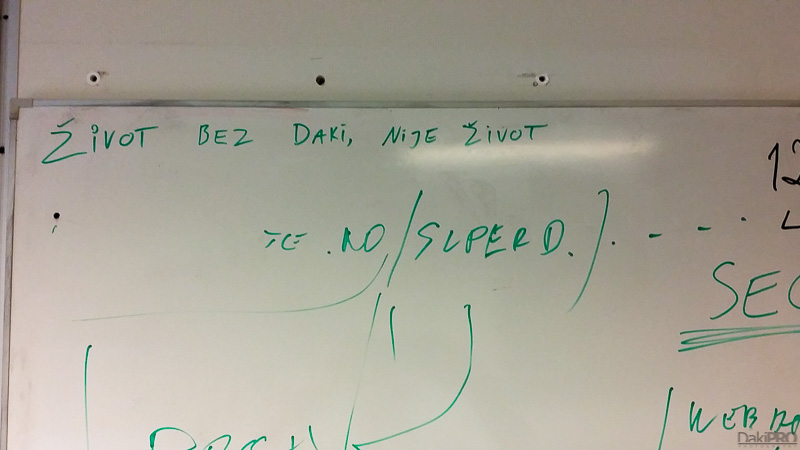 ŽIVOT BEZ DAKI, NIJE ŽIVOT
12
.NO/SUPERD.
SEC
WEB
DakiPRO